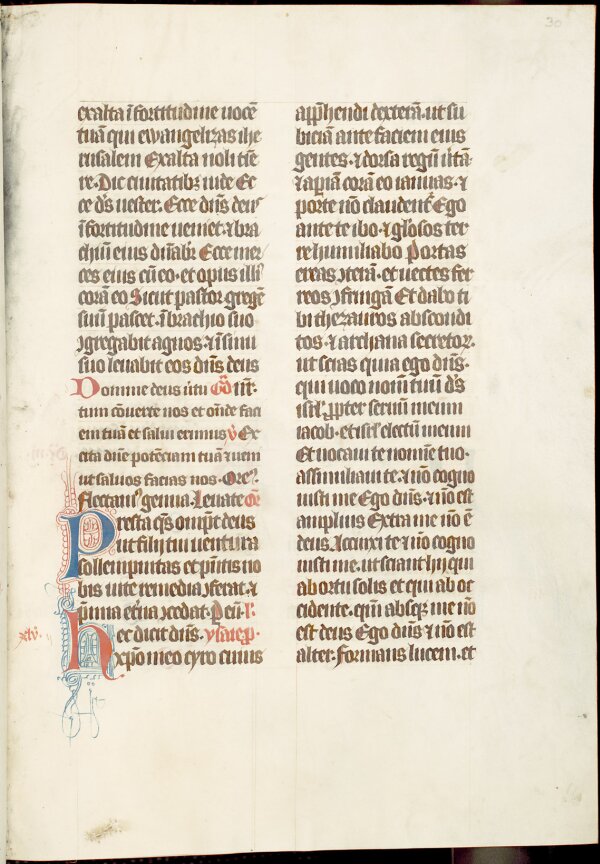 30
exalta ī fortitudine uocē
tuā qui ewangelizas ihe
rusalem Exalta noli tīe
re· Dic ciuitatibꝫ iude Ec
ce ds̄ uester· Ecce dn̄s deus
ī fortitudine ueniet ⁊ bra
chiū eius dn̄abit̄ Ecce mer
ces eius cū eo· et opus illiꝰ
corā eo Sicut pastor gregē
suū pascet· ī brachio suo
ꝯgregabit agnos· ⁊ ī sinu
suo leuabit eos dn̄s deus
Domine deus uirtu
tum cōuerte nos et on̄de faci
em tuā et salui erimus ℣ Ex
cita dn̄e potēciam tuā ⁊ ueni
ut saluos facias nos· Orem̄ꝰ
flectamꝰ genua· Leuate
Presta qs̄ omp̄t deus
ut filij tui uentura
sollempnitas et p̄ntis no
bis uite remedia ꝯferat· ⁊
p̄mia et̄na ꝯcedat· P eū·
hec dicit dn̄s· ysaie
xp̄o meo cyro cuius
app̄hendi dexterā· ut su
biciā ante faciem eius
gentes· ⁊ dorsa regū ūtā·
⁊ apiā corā eo ianuas· ⁊
porte nō claudent̄ Ego
ante te ibo· ⁊ gl̄osos ter
re humiliabo Portas
ereas ꝯterā· et uectes fer
reos ꝯfringā Et dabo ti
bi thezauros abscondi
tos· ⁊ archana secretor·
ut scias quia ego dn̄s·
qui uoco nom̄ tuū ds̄
isrl̄· ꝓpter seruū meum
iacob· et isrl̄ electū meum
Et uocaui te nomīe tuo·
assimilaui te· ⁊ nō cogno
uisti me Ego dn̄s· ⁊ nō est
amplius Extra me nō ē
deus Accinxi te ⁊ nō cogno
uisti me· ut sciant hij qui
ab ortu solis et qui ab oc
cidente· qm̄ absqꝫ me nō
est deus Ego dn̄s ⁊ nō est
alter· Formans lucem· et